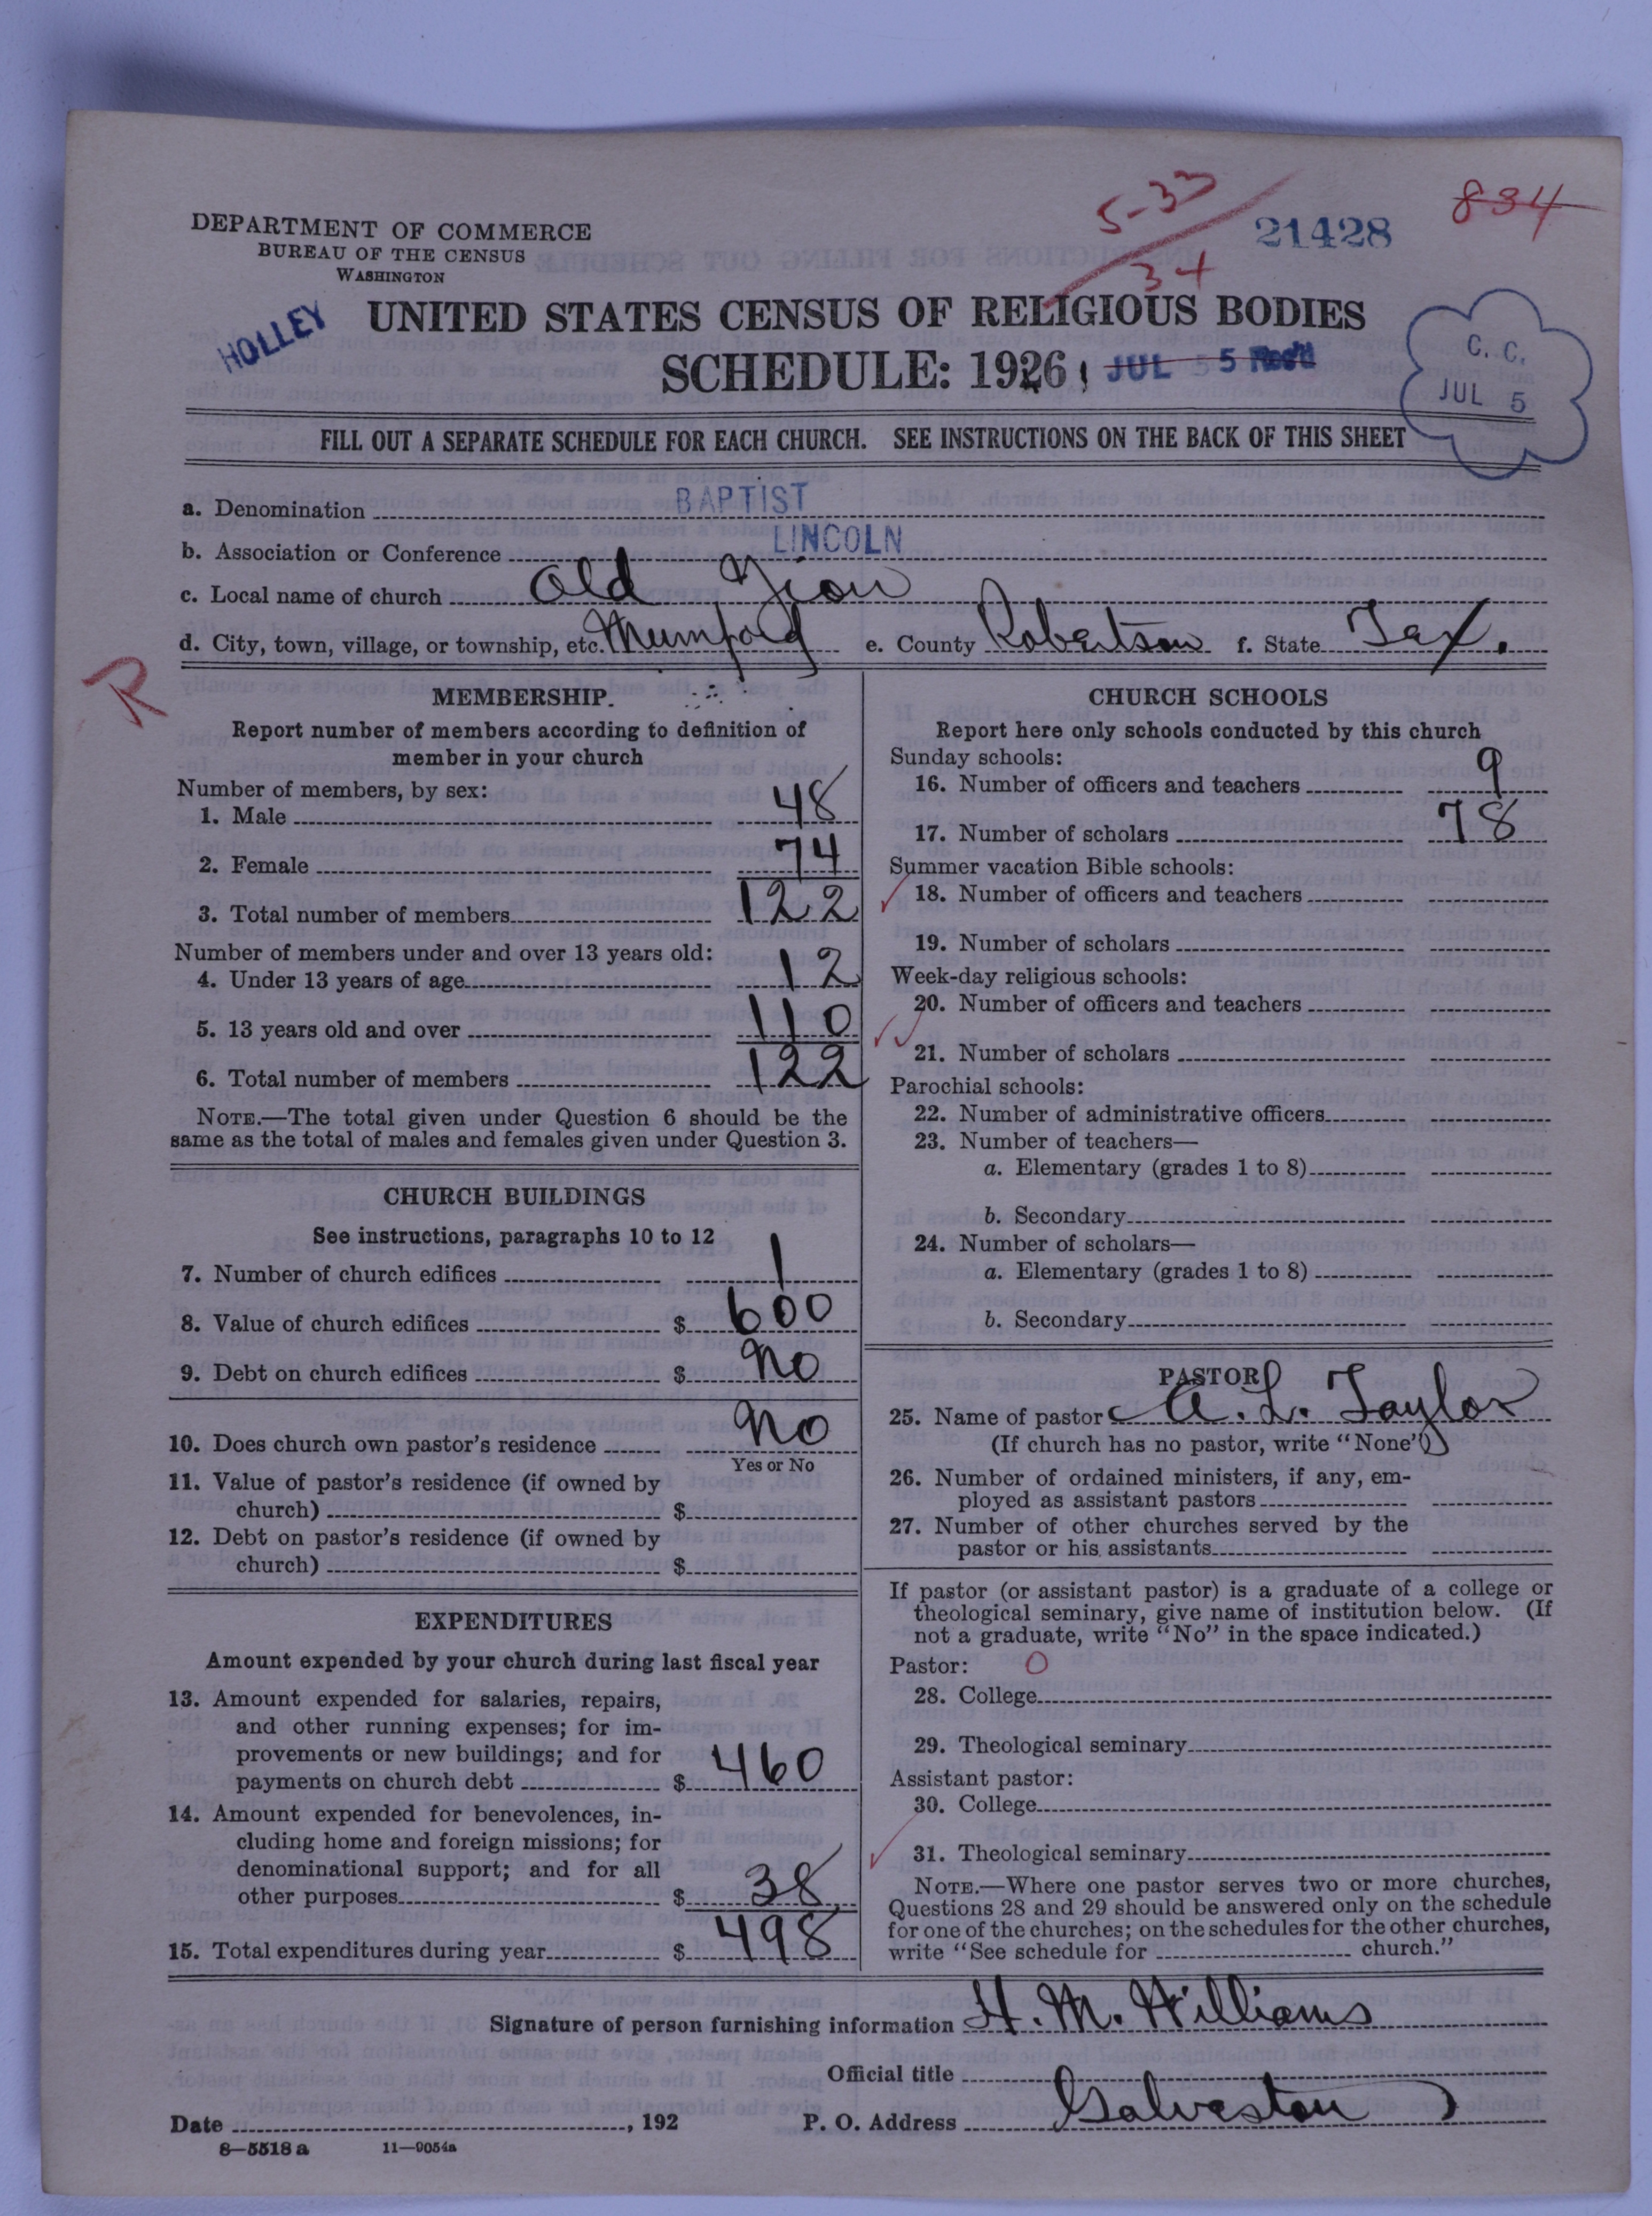 5-33
34
21428
834
DEPARTMENT OF COMMERCE
BUREAU OF THE CENSUS
WASHINGTON
HOLLEY
UNITED STATES CENSUS OF RELIGIOUS BODIES
SCHEDULE: 1926
JUL 5 5 Rec'd
C. C.
JUL 5
FILL OUT A SEPARATE SCHEDULE FOR EACH CHURCH. SEE INSTRUCTIONS ON THE BACK OF THIS SHEET
a. Denomination BAPTIST
b. Association or Conference LINCOLN
c. Local name of church Old Zion
d. City, town, village, or township, etc. Mumford e. County Robertson f. State Tex.
R
MEMBERSHIP.
Report number of members according to definition of
member in your church
Number of members, by sex:
1. Male 48
2. Female 74
3. Total number of members 122
Number of members under and over 13 years old:
4. Under 13 years of age 12
5. 13 years old and over 110
6. Total number of members 122
NOTE.—The total given under Question 6 should be the
same as the total of males and females given under Question 3.
CHURCH BUILDINGS
See instructions, paragraphs 10 to 12
7. Number of church edifices 1
8. Value of church edifices $ 600
9. Debt on church edifices $ No
10. Does church own pastor's residence No
Yes or No
11. Value of pastor's residence (if owned by
church) $
12. Debt on pastor's residence (if owned by
church) $
EXPENDITURES
Amount expended by your church during last fiscal year
13. Amount expended for salaries, repairs,
and other running expenses; for im-
provements or new buildings; and for
payments on church debt $ 460
14. Amount expended for benevolences, in-
cluding home and foreign missions; for
denominational support; and for all
other purposes $ 38
15. Total expenditures during year $ 498
CHURCH SCHOOLS
Report here only schools conducted by this church
Sunday schools:
16. Number of officers and teachers 9
17. Number of scholars 78
Summer vacation Bible schools:
18. Number of officers and teachers
19. Number of scholars
Week-day religious schools:
20. Number of officers and teachers
21. Number of scholars
Parochial schools:
22. Number of administrative officers
23. Number of teachers—
a. Elementary (grades 1 to 8)
b. Secondary
24. Number of scholars—
a. Elementary (grades 1 to 8)
b. Secondary
PASTOR
25. Name of pastor A. L. Taylor
(If church has no pastor, write "None")
26. Number of ordained ministers, if any, em-
ployed as assistant pastors
27. Number of other churches served by the
pastor or his assistants
If pastor (or assistant pastor) is a graduate of a college or
theological seminary, give name of institution below. (If
not a graduate, write "No" in the space indicated.)
Pastor: O
28. College
29. Theological seminary
Assistant pastor:
30. College
31. Theological seminary
NOTE.—Where one pastor serves two or more churches,
Questions 28 and 29 should be answered only on the schedule
for one of the churches; on the schedules for the other churches,
write "See schedule for church."
Signature of person furnishing information H. M. Williams
Official title
Date , 192 P. O. Address Galveston
8—5518 a 11—9054a